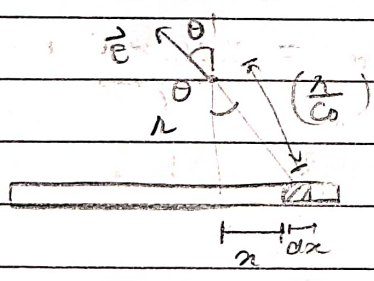 θ
E⃗
θ
r
(r/Cθ)
x
dx